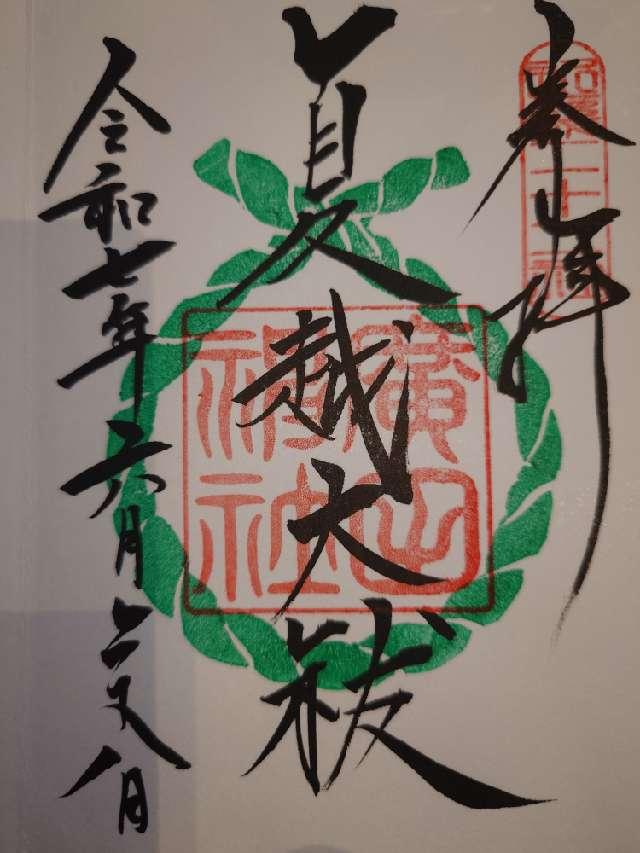 奉拝
二十二社
夏越大祓
廣田神社
令和七年六月